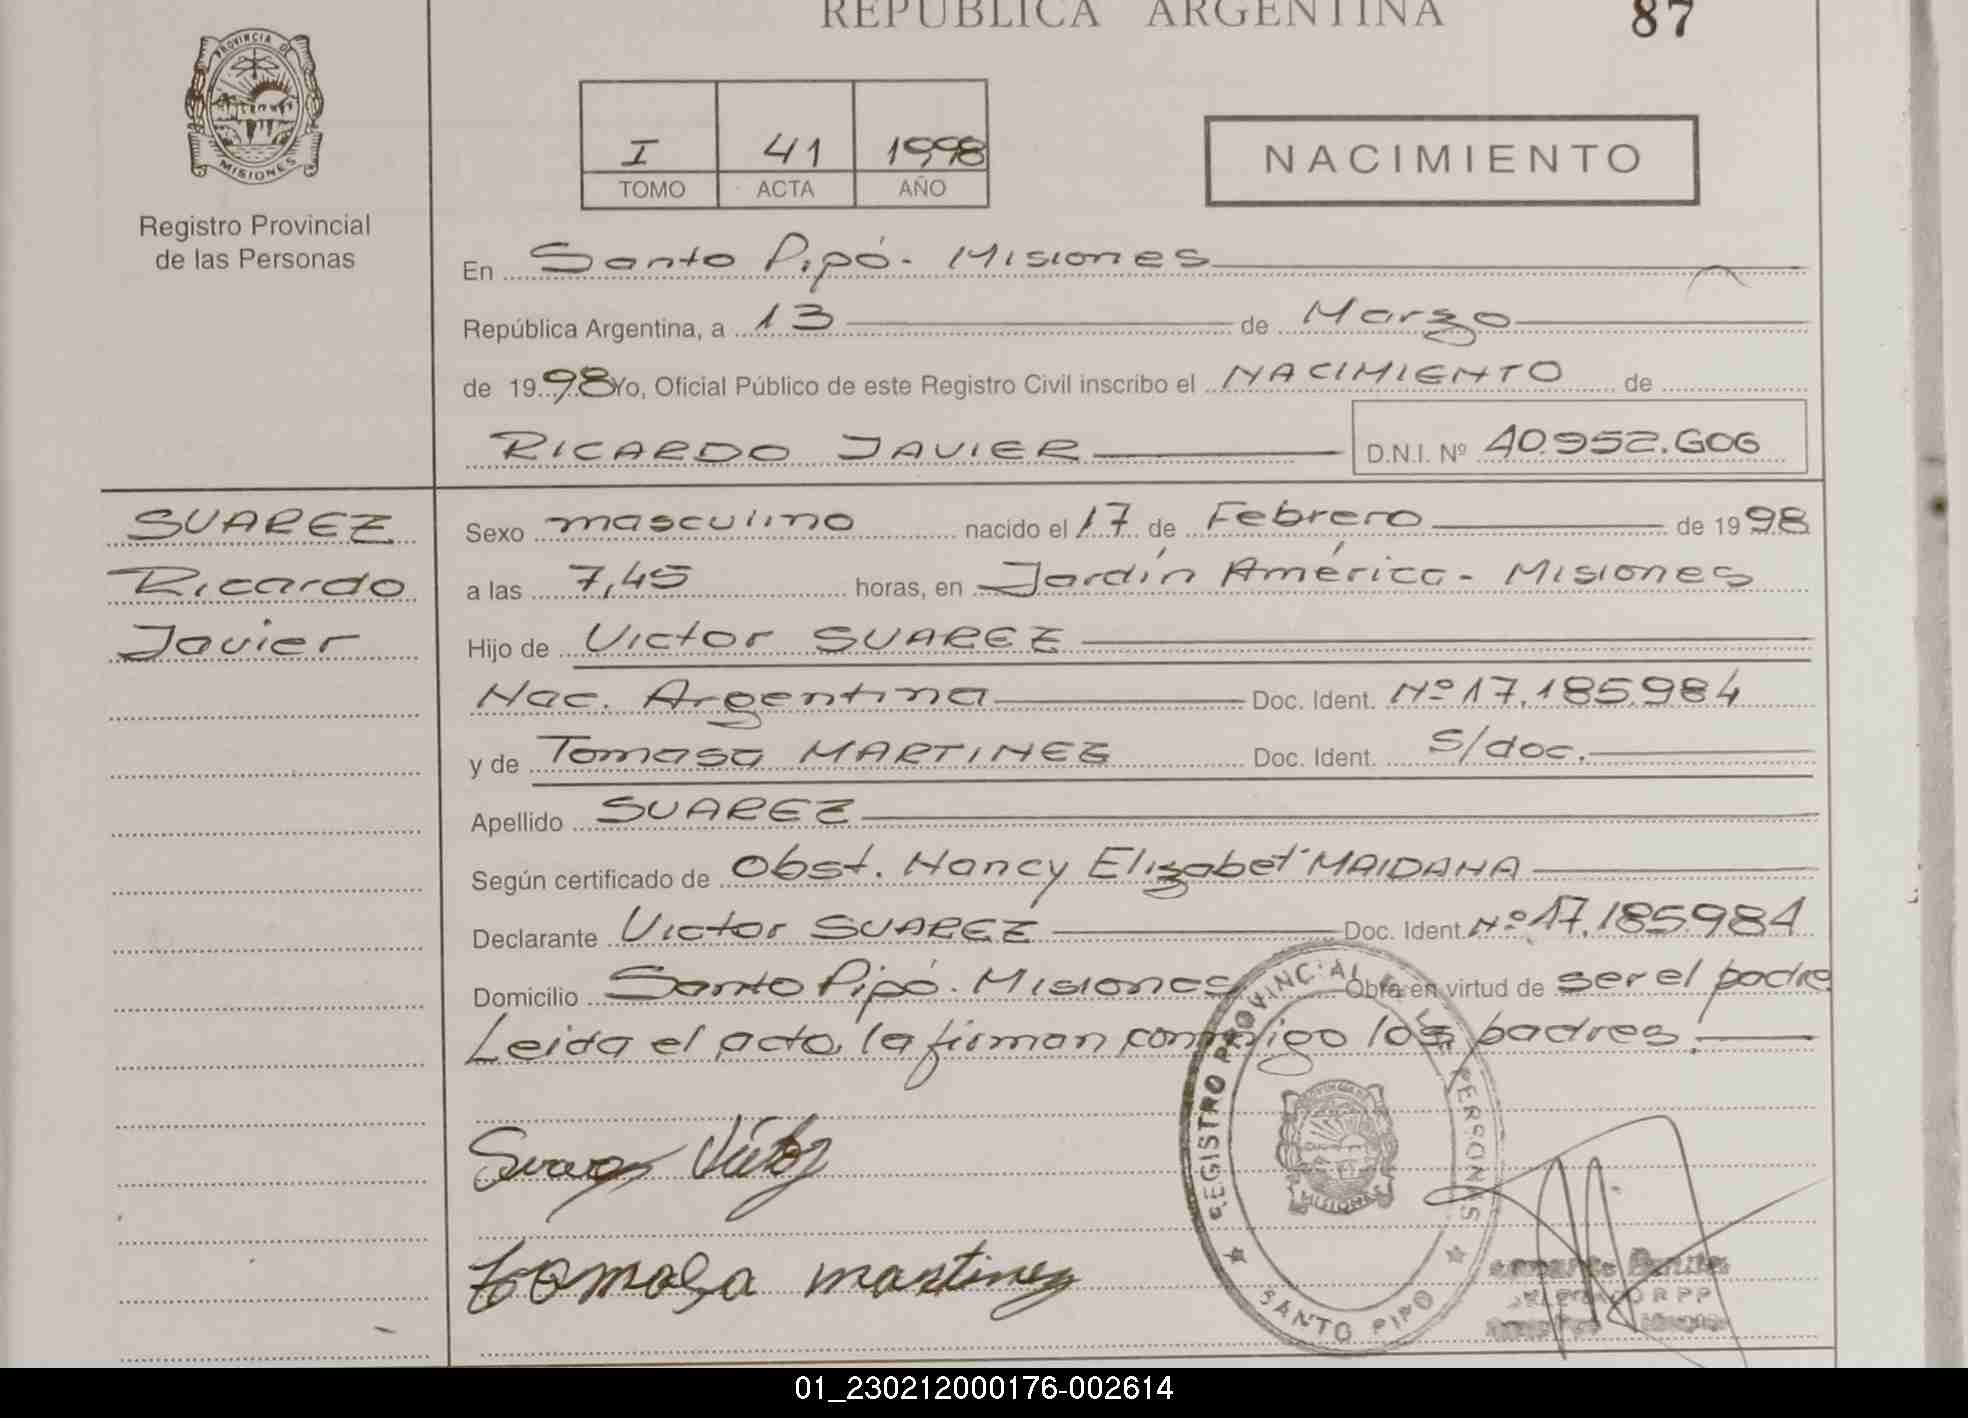 REPUBLICA ARGENTINA
87
PROVINCIA DE
MISIONES
Registro Provincial
de las Personas
I 41 1998
TOMO ACTA AÑO
NACIMIENTO
En Santo Pipó - Misiones
República Argentina, a 13 de Marzo
de 1998 Yo, Oficial Público de este Registro Civil inscribo el NACIMIENTO de
RICARDO JAVIER D.N.I. Nº 40.952.606
SUAREZ
Ricardo
Javier
Sexo masculino nacido el 17 de Febrero de 1998
a las 7,45 horas, en Jardín América - Misiones
Hijo de Victor SUAREZ
Nac. Argentina Doc. Ident. Nº 17.185.984
y de Tomasa MARTINEZ Doc. Ident. S/doc.
Apellido SUAREZ
Según certificado de Obst. Nancy Elizabet MAIDANA
Declarante Victor SUAREZ Doc. Ident. Nº 17.185.984
Domicilio Santo Pipó - Misiones Obra en virtud de ser el padre
Leida el acta, la firman conmigo los padres.
Suarez Victor
tomasa martinez
REGISTRO PROVINCIAL DE LAS PERSONAS
MISIONES
SANTO PIPO
Benitez
R P P
01_230212000176-002614